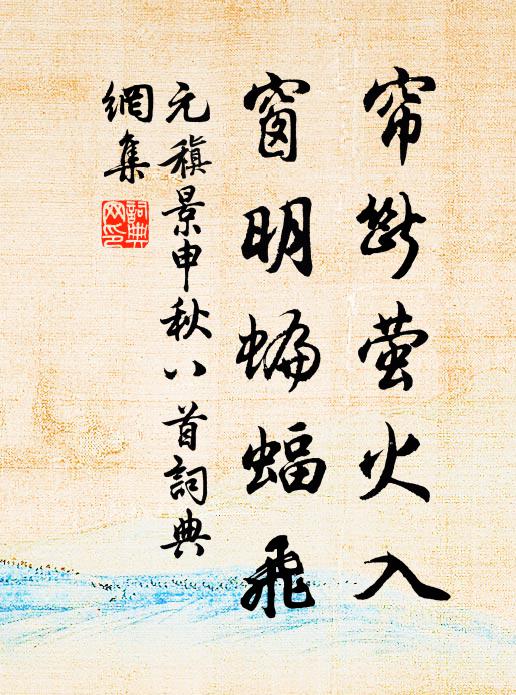 帘断萤火入
窗明蝙蝠飛
元稹景申秋八首詞典
網集
詞典网印